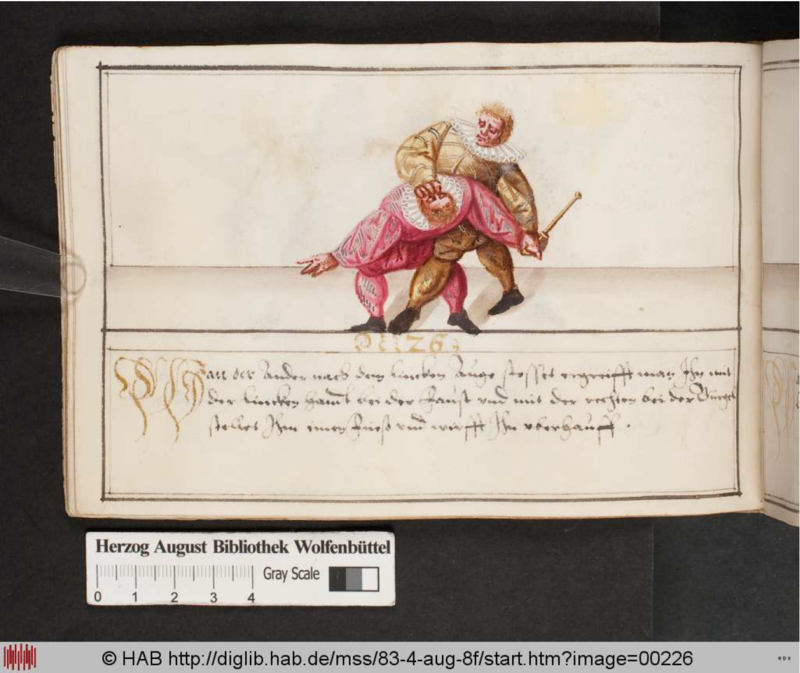 26
Wan der Ander nach dem lincken Auge stosset ergreifft man Ihn mit
der lincken handt bei der Faust vnd mit der rechten bei der Gurgel
stellet Ihm einen Fueß vnd wirfft Ihn vberhauff.
Herzog August Bibliothek Wolfenbüttel
Gray Scale
0 1 2 3 4
© HAB http://diglib.hab.de/mss/83-4-aug-8f/start.htm?image=00226